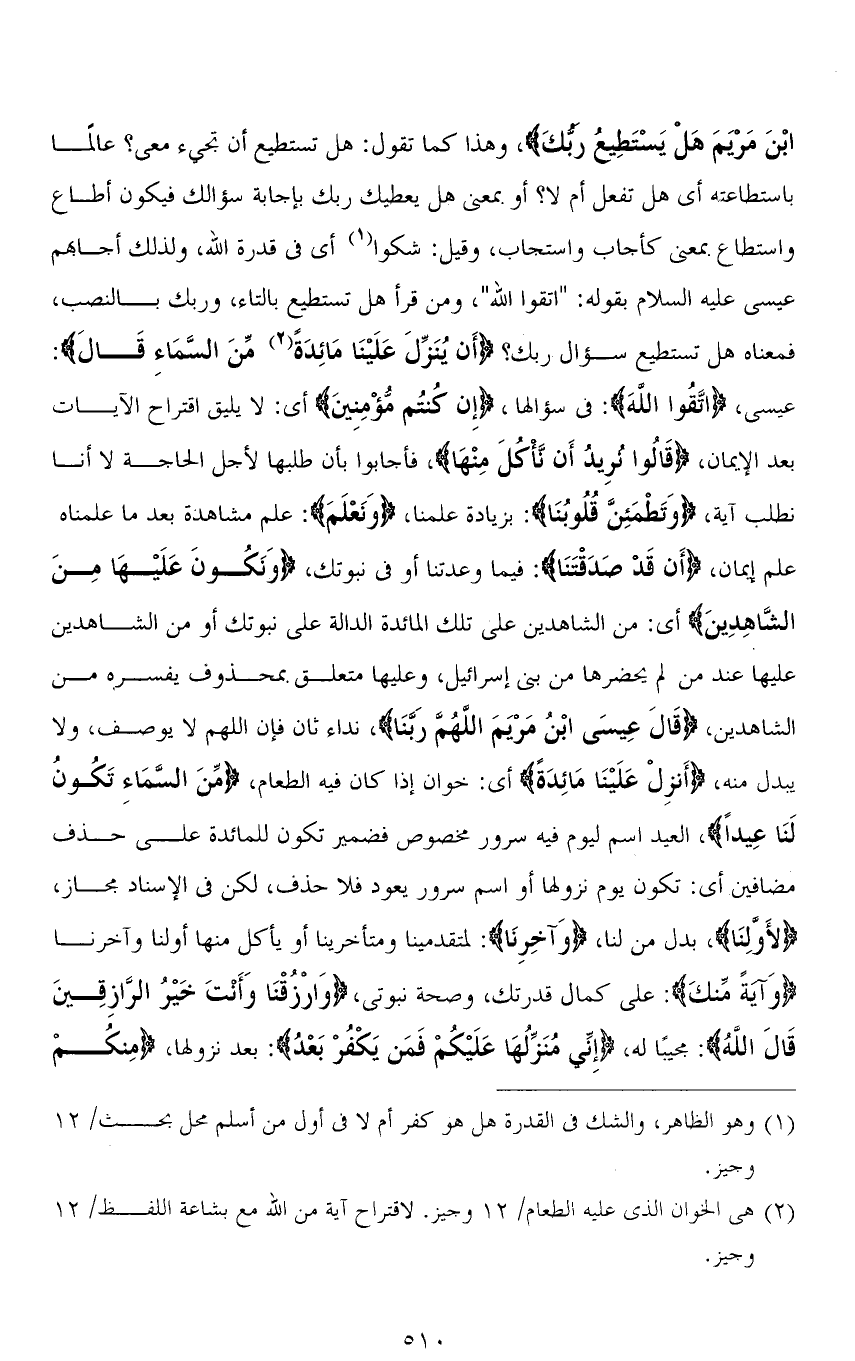 ابْنَ مَرْيَمَ هَلْ يَسْتَطِيعُ رَبُّكَ﴾، وهذا كما تقول: هل تستطيع أن تجيء معى؟ عالمًا
باستطاعته أى هل تفعل أم لا؟ أو بمعنى هل يعطيك ربك بإجابة سؤالك فيكون أطاع
واستطاع بمعنى كأجاب واستجاب، وقيل: شكوا(١) أى فى قدرة الله، ولذلك أجابهم
عيسى عليه السلام بقوله: "اتقوا الله"، ومن قرأ هل تستطيع بالتاء، وربك بالنصب،
فمعناه هل تستطيع سؤال ربك؟ ﴿أَن يُنَزِّلَ عَلَيْنَا مَائِدَةً(٢) مِّنَ السَّمَاءِ قَالَ﴾:
عيسى، ﴿اتَّقُوا اللَّهَ﴾: فى سؤالها، ﴿إِن كُنتُم مُّؤْمِنِينَ﴾ أى: لا يليق اقتراح الآيات
بعد الإيمان، ﴿قَالُوا نُرِيدُ أَن نَّأْكُلَ مِنْهَا﴾، فأجابوا بأن طلبها لأجل الحاجة لا أنا
نطلب آية، ﴿وَتَطْمَئِنَّ قُلُوبُنَا﴾: بزيادة علمنا، ﴿وَنَعْلَمَ﴾: علم مشاهدة بعد ما علمناه
علم إيمان، ﴿أَن قَدْ صَدَقْتَنَا﴾: فيما وعدتنا أو فى نبوتك، ﴿وَنَكُونَ عَلَيْهَا مِنَ
الشَّاهِدِينَ﴾ أى: من الشاهدين على تلك المائدة الدالة على نبوتك أو من الشاهدين
عليها عند من لم يحضرها من بنى إسرائيل، وعليها متعلق بمحذوف يفسره من
الشاهدين، ﴿قَالَ عِيسَى ابْنُ مَرْيَمَ اللَّهُمَّ رَبَّنَا﴾، نداء ثان فإن اللهم لا يوصف، ولا
يبدل منه، ﴿أَنزِلْ عَلَيْنَا مَائِدَةً﴾ أى: خوان إذا كان فيه الطعام، ﴿مِّنَ السَّمَاءِ تَكُونُ
لَنَا عِيداً﴾، العيد اسم ليوم فيه سرور مخصوص فضمير تكون للمائدة على حذف
مضافين أى: تكون يوم نزولها أو اسم سرور يعود فلا حذف، لكن فى الإسناد مجاز،
﴿لأَوَّلِنَا﴾، بدل من لنا، ﴿وَآخِرِنَا﴾: لمتقدمينا ومتأخرينا أو يأكل منها أولنا وآخرنا
﴿وَآيَةً مِّنكَ﴾: على كمال قدرتك، وصحة نبوتى، ﴿وَارْزُقْنَا وَأَنْتَ خَيْرُ الرَّازِقِينَ
قَالَ اللَّهُ﴾: مجيبًا له، ﴿إِنِّي مُنَزِّلُهَا عَلَيْكُمْ فَمَن يَكْفُرْ بَعْدُ﴾: بعد نزولها، ﴿مِنكُمْ
(١) وهو الظاهر، والشك فى القدرة هل هو كفر أم لا فى أول من أسلم محل بحث/ ١٢
وجيز.
(٢) هى الخوان الذى عليه الطعام/ ١٢ وجيز. لاقتراح آية من الله مع بشاعة اللفظ/ ١٢
وجيز.
٥١٠